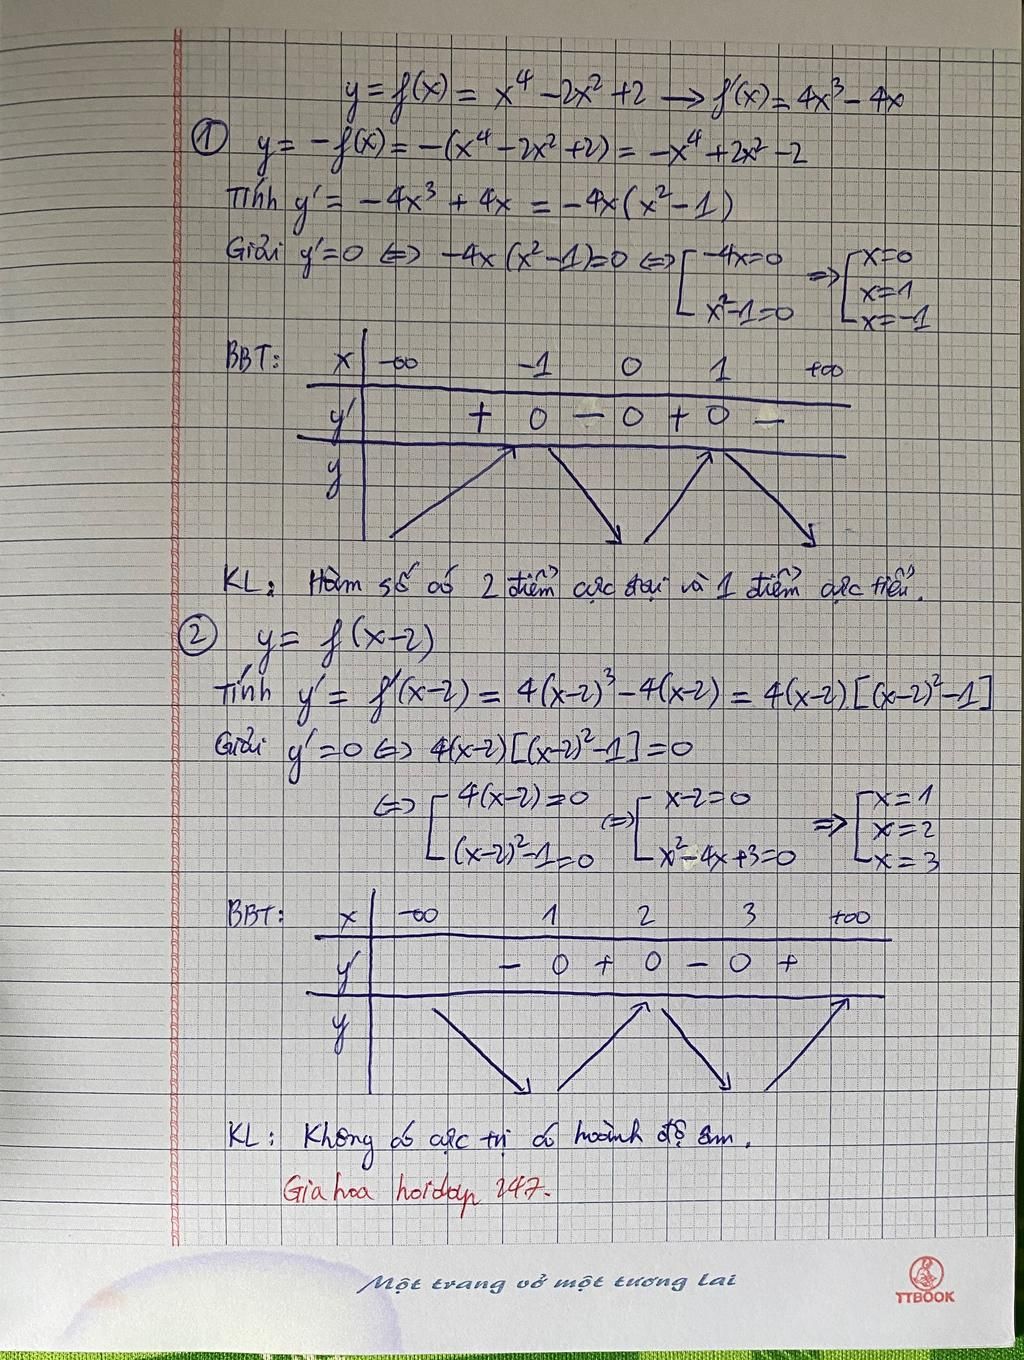 y = f(x) = x⁴ - 2x² + 2 → f'(x) = 4x³ - 4x
① y = -f(x) = -(x⁴ - 2x² + 2) = -x⁴ + 2x² - 2
Tính y' = -4x³ + 4x = -4x(x² - 1)
Giải y' = 0 ⇔ -4x(x² - 1) = 0 ⇔ [ -4x = 0 ⇒ [ x = 0
x² - 1 = 0 x = 1
x = -1
BBT: x -∞ -1 0 1 +∞
y' + 0 - 0 + 0 -
y
KL: Hàm số có 2 điểm cực đại và 1 điểm cực tiểu.
② y = f(x-2)
Tính y' = f'(x-2) = 4(x-2)³ - 4(x-2) = 4(x-2)[(x-2)² - 1]
Giải y' = 0 ⇔ 4(x-2)[(x-2)² - 1] = 0
⇔ [ 4(x-2) = 0 ⇔ [ x-2 = 0 ⇒ [ x = 1
x = 2
(x-2)² - 1 = 0 x² - 4x + 3 = 0 x = 3
BBT: x -∞ 1 2 3 +∞
y' - 0 + 0 - 0 +
y
KL: Không có cực trị có hoành độ âm.
Gia hoa hoidap 247.
Một trang vở một tương lai
TTBOOK